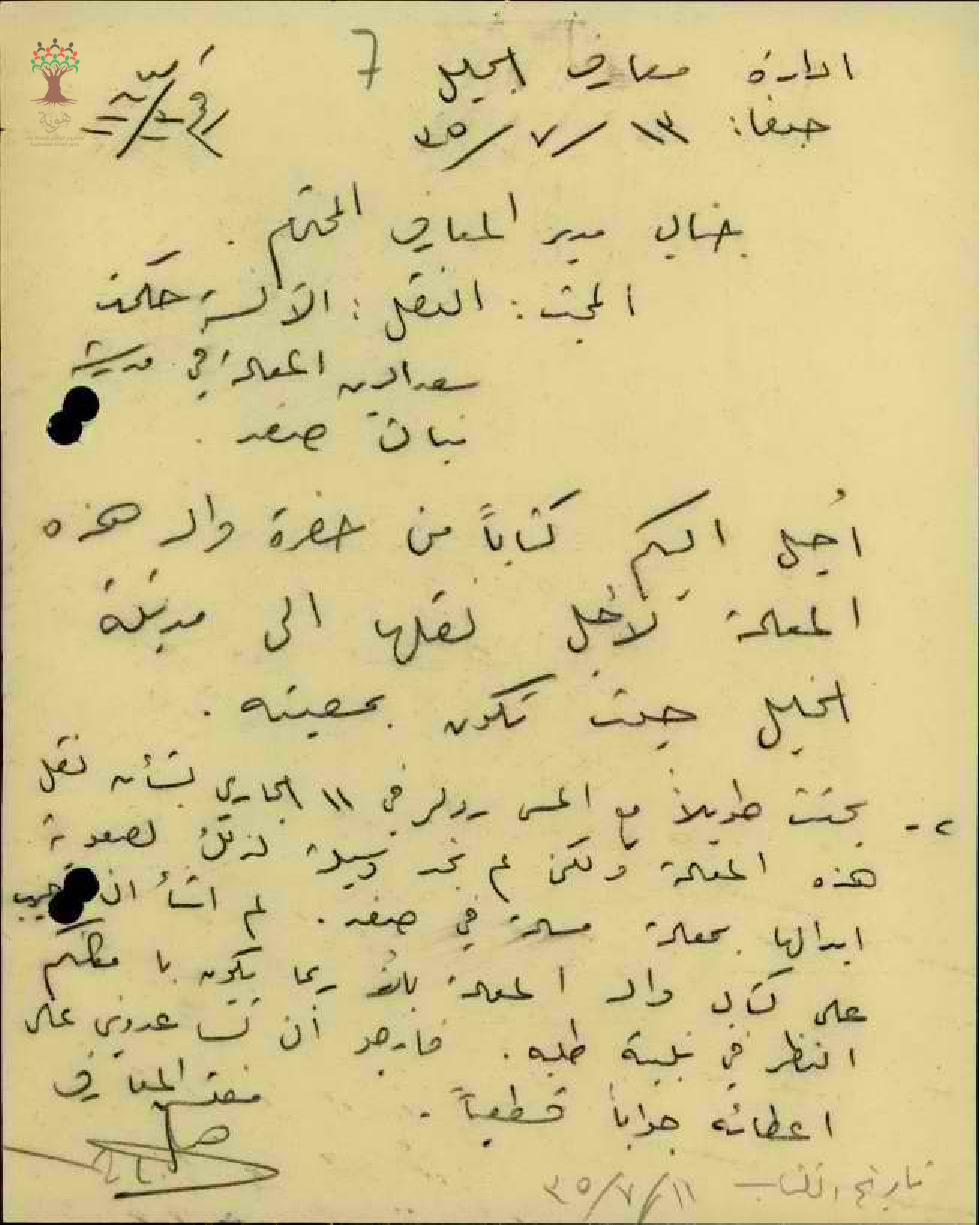 ادارة معارف الجليل 7
صفد: ١٣/٧/٣٥
هوية
جناب مدير المعارف المحترم .
البحث: النقل: الآنسة حكمت
سعد الدين المعلمة في مدرسة
بنات صفد .
أحيل اليكم كتاباً من حضرة والد هذه
المعلمة لأجل نقلها الى مدينة
الخليل حيث تكون بمعيته .
٢- بحثت طويلاً مع المس ردلر في ١١ الجاري بشأن نقل
هذه المعلمة ولكن لم نجد وسيلة لذلك لصعوبة
ابدالها بمعلمة مسلمة في صفد. لم اشأ ان اجيب
على كتاب والد المعلمة بأنه ربما يكون بامكانكم
النظر في تلبية طلبه. فارجو أن تساعدوني على
اعطائه جواباً قطعياً .
مفتش المعارف
تاريخ الكتاب ١١/٧/٣٥